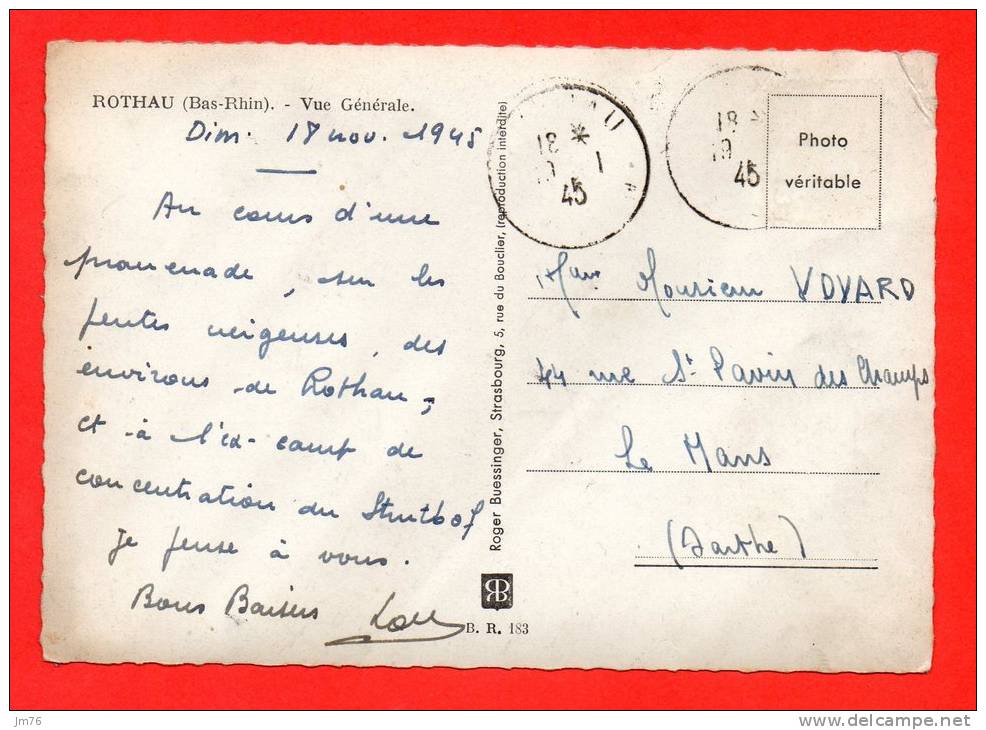 ROTHAU (Bas-Rhin). - Vue Générale.
Dim. 18 nov. 1945
Au cours d'une
promenade, sur les
pentes neigeuses, des
environs de Rothau,
et à l'ex-camp de
concentration du Struthof
Je pense à vous.
Bons Baisers
Roger Buessinger, Strasbourg, 5, rue du Bouclier, (reproduction interdite)
BR
B. R. 183
AU
18 *
1
45
18 *
19
45
Photo
véritable
Monsieur VOYARD
44 rue St Pavin des Champs
Le Mans
(Sarthe)
jm76
www.delcampe.net